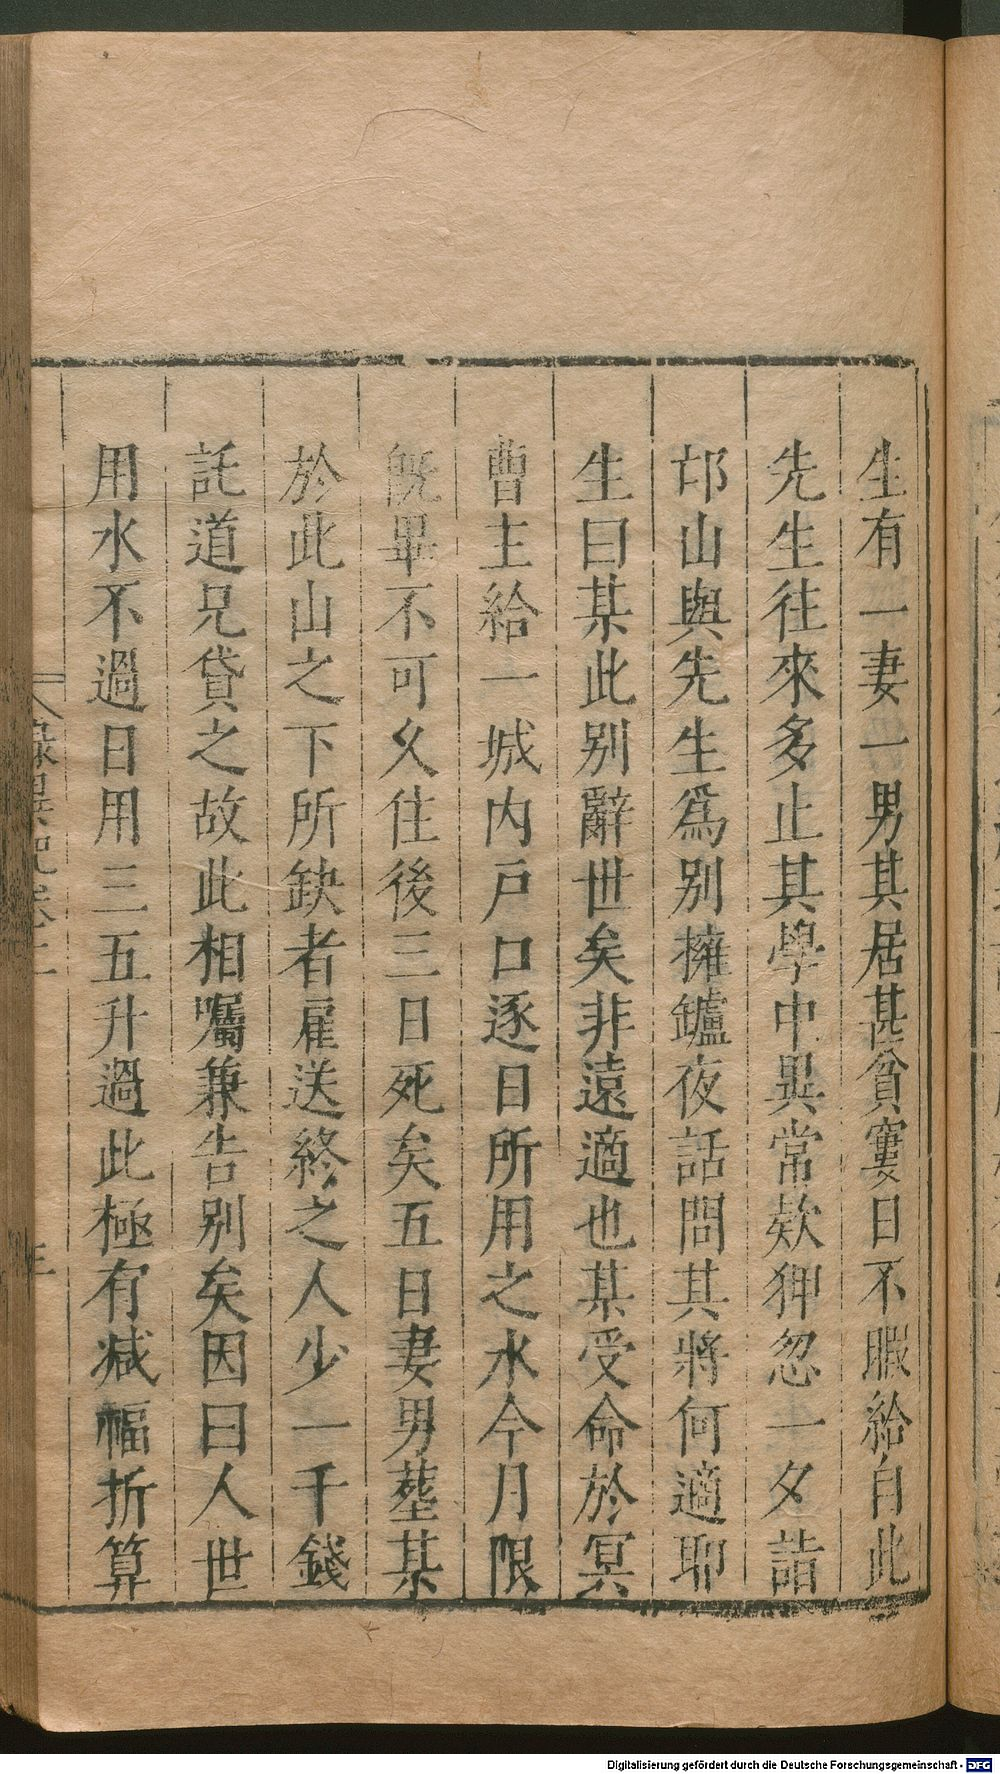 生有一妻一男其居甚貧窶日不暇給自此
先生往來多止其學中異常欵狎忽一夕詣
邙山與先生爲別擁鑪夜話問其將何適耶
生曰某此別辭世矣非遠適也某受命於冥
曹主給一城内戸口逐日所用之水今月限
旣畢不可久住後三日死矣五日妻男葬某
於此山之下所缺者雇送終之人少一千錢
託道兄貸之故此相囑兼告別矣因曰人世
用水不過日用三五升過此極有減福折算
Digitalisierung gefördert durch die Deutsche Forschungsgemeinschaft - DFG